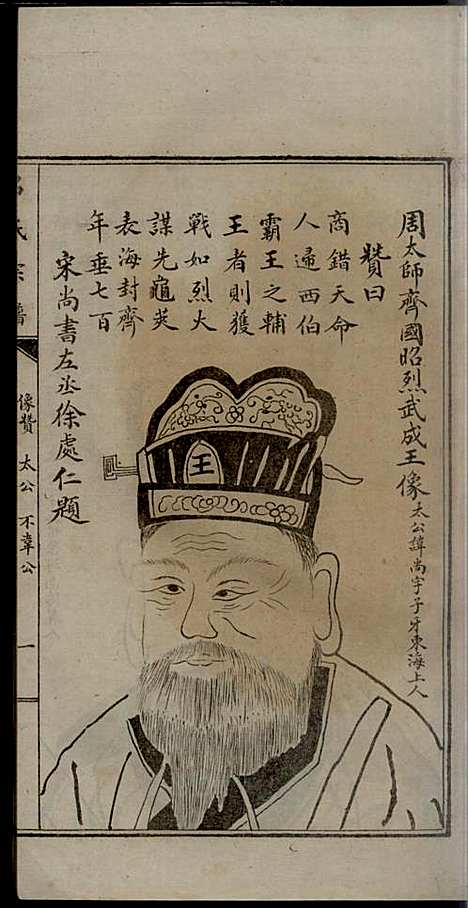 周太師齊國昭烈武成王像 太公諱尚字子牙東海上人
贊曰
商錯天命
人歸西伯
霸王之輔
王者則獲
戰如烈火
謀先龜筴
表海封齊
年垂七百
宋尚書左丞徐處仁題
王
氏宗譜
像贊 太公 不韋公
一